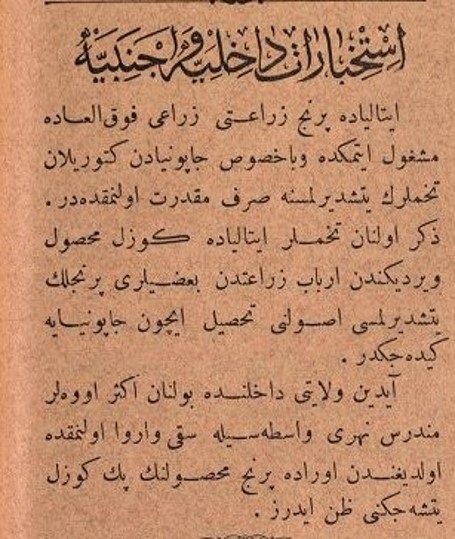 استخبارات داخلیه و اجنبیه
ایتالیاده پرنج زراعتی زراعی فوق‌العاده
مشغول ایتمکده وباخصوص جاپونیادن کتوریلان
تخملرك یتشدیرلمسنه صرف مقدرت اولنمقده‌در.
ذکر اولنان تخملر ایتالیاده کوزل محصول
ویردیکندن ارباب زراعتدن بعضیلری پرنجلك
یتشدیرلمسی اصولنی تحصیل ایچون جاپونیایه
کیده‌جکدر .
آیدین ولایتی داخلنده بولنان اکثر اووه‌لر
مندرس نهری واسطه‌سیله سقی واروا اولنمقده
اولدیغندن اوراده پرنج محصولنك پك کوزل
یتشه‌جکنی ظن ایدرز .